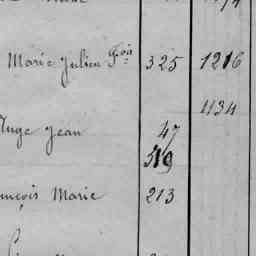 Marie Julien Fois 325 1216
1134
Ange Jean 47
519
nçois Marie 213